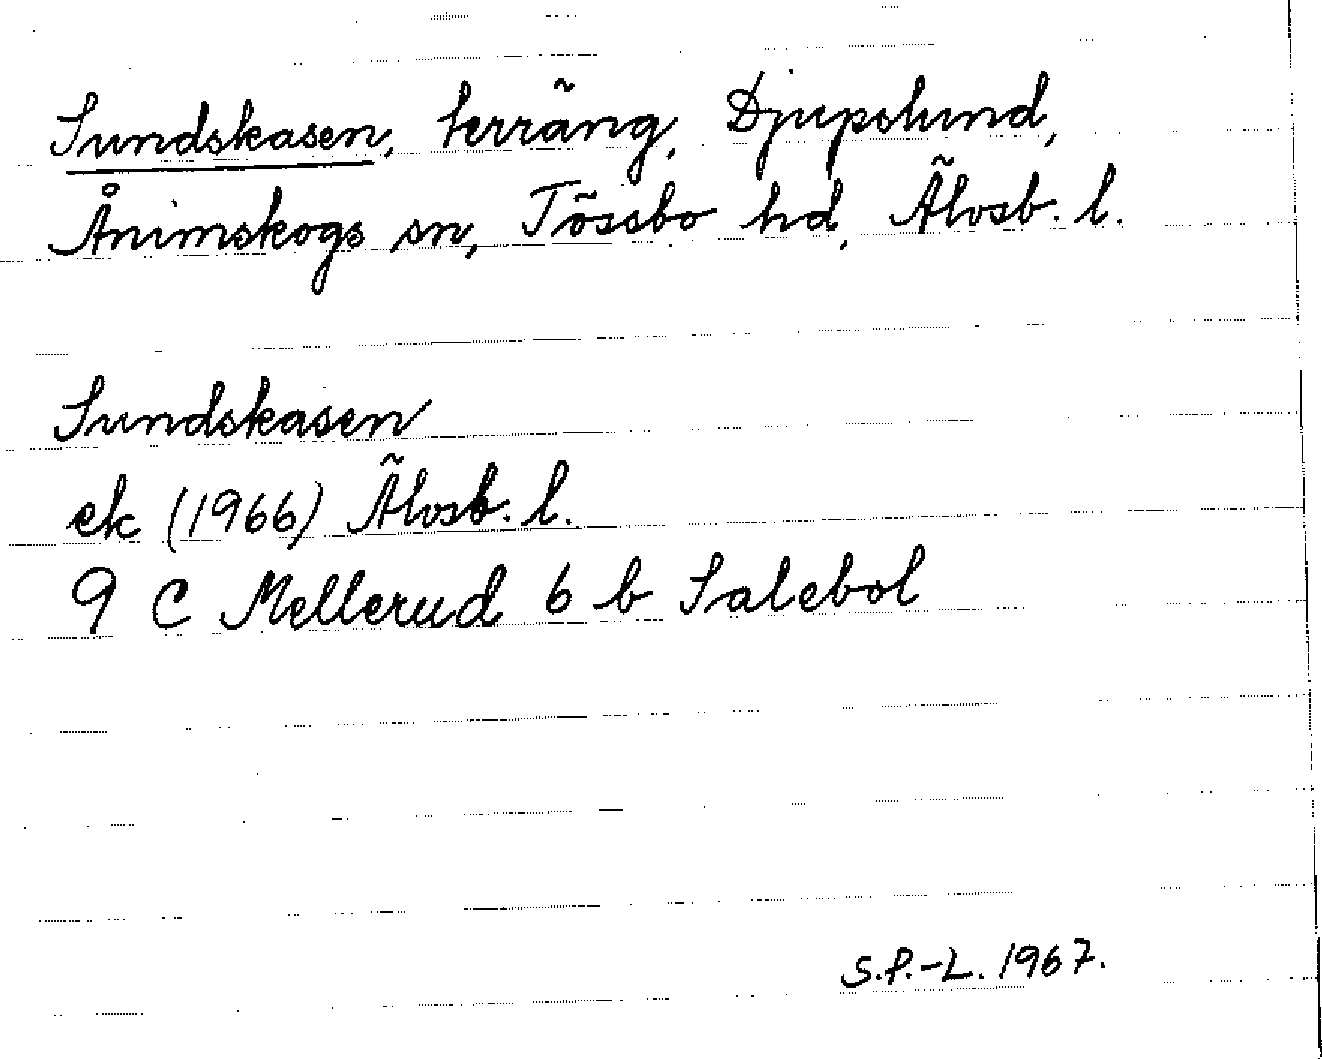 Sundskasen, terräng, Djupslund,
Ånimskogs sn, Tössbo hd, Älvsb. l.
Sundskasen
ek (1966) Älvsb. l.
9 C Mellerud 6 b Salebol
S.P.-L. 1967.